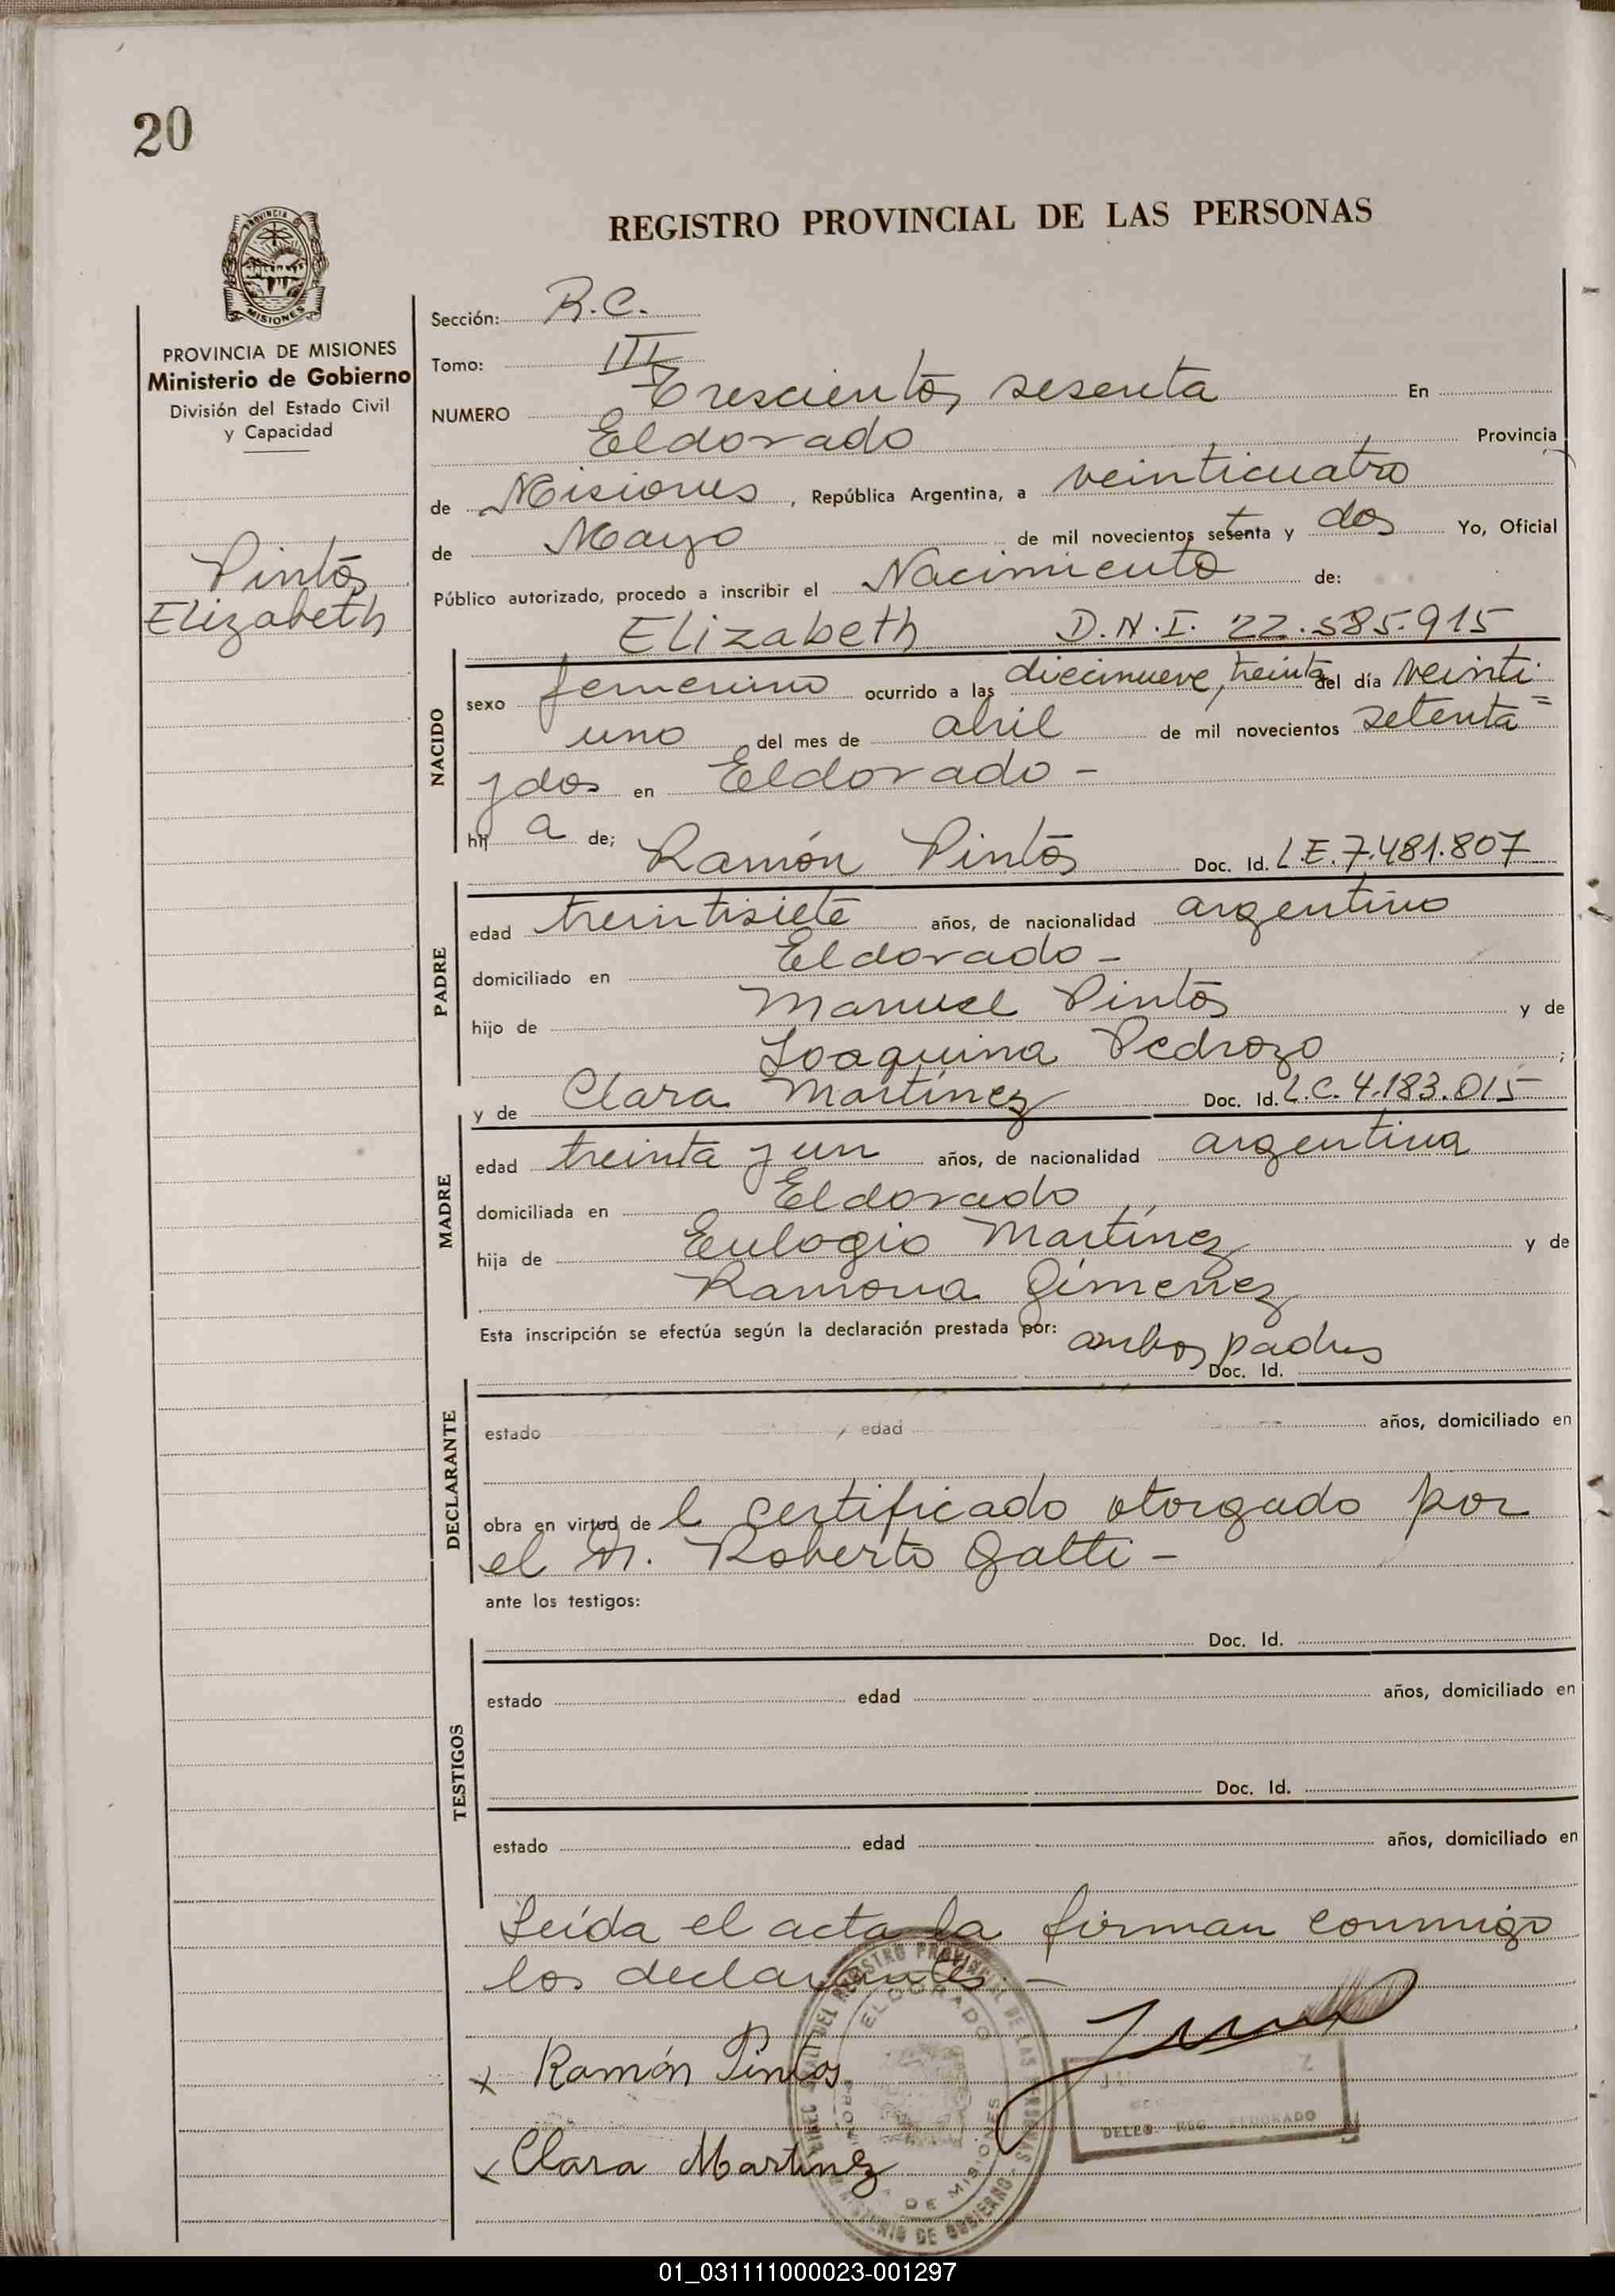 20
REGISTRO PROVINCIAL DE LAS PERSONAS
PROVINCIA
MISIONES
PROVINCIA DE MISIONES
Ministerio de Gobierno
División del Estado Civil
y Capacidad
Pintos
Elizabeth
Sección: R.C.
Tomo: III
NUMERO Trescientos sesenta En
Eldorado Provincia
de Misiones, República Argentina, a veinticuatro
de Mayo de mil novecientos setenta y dos Yo, Oficial
Público autorizado, procedo a inscribir el Nacimiento de:
Elizabeth D.N.I. 22.585.915
NACIDO
sexo femenino ocurrido a las diecinueve, treinta del día veinti
uno del mes de abril de mil novecientos setenta=
y dos en Eldorado -
hij a de; Ramón Pintos Doc. Id. L.E. 7.481.807
PADRE
edad treintisiete años, de nacionalidad argentino
domiciliado en Eldorado -
hijo de Manuel Pintos y de
Joaquina Pedrozo ;
y de Clara Martínez Doc. Id. L.C. 4.183.015
MADRE
edad treinta y un años, de nacionalidad argentina
domiciliada en Eldorado
hija de Eulogio Martínez y de
Ramona Gimenez
Esta inscripción se efectúa según la declaración prestada por: ambos padres
Doc. Id.
DECLARANTE
estado edad años, domiciliado en
obra en virtud de l certificado otorgado por
el M. Roberto Gatti -
ante los testigos:
Doc. Id.
TESTIGOS
estado edad años, domiciliado en
Doc. Id.
estado edad años, domiciliado en
Leída el acta la firman conmigo
los declarantes. -
x Ramón Pintos
x Clara Martínez
ELDORADO
DE MISIONES
DELEG. REG. ELDORADO
01_031111000023-001297